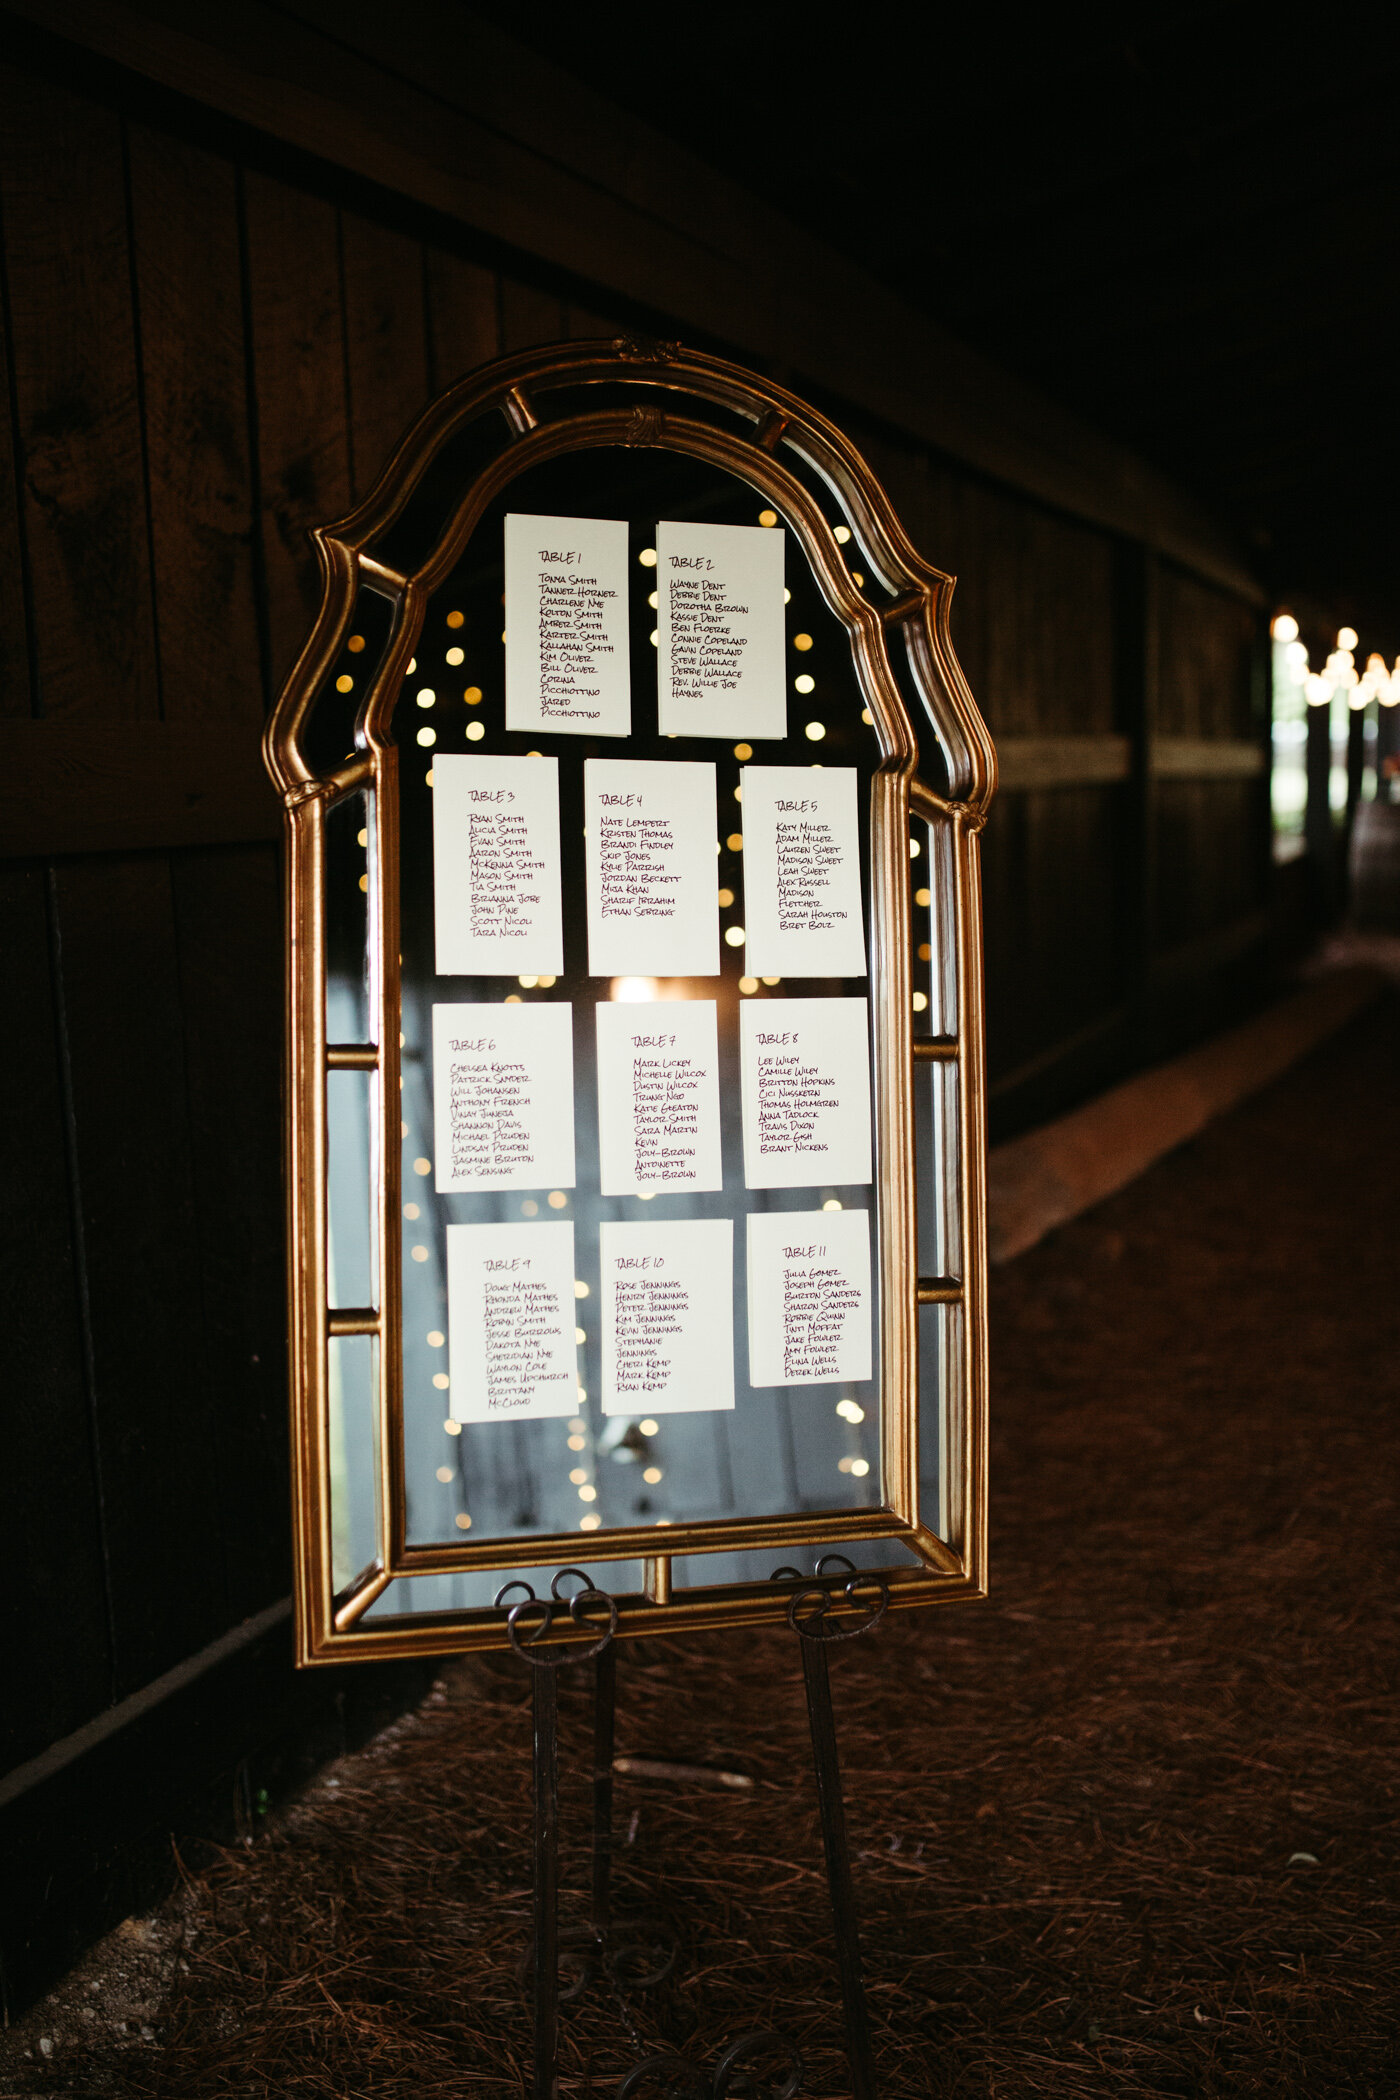 TABLE 1
TONYA SMITH
TANNER HORNER
CHARLENE NYE
KOLTON SMITH
AMBER SMITH
KARTER SMITH
KALLAHAN SMITH
KIM OLIVER
BILL OLIVER
CORINA
PICCHIOTTINO
JARED
PICCHIOTTINO
TABLE 2
WAYNE DENT
DEBBIE DENT
DOROTHA BROWN
KASSIE DENT
BEN FLOERKE
CONNIE COPELAND
GAVIN COPELAND
STEVE WALLACE
DEBBIE WALLACE
REV. WILLIE JOE
HAYNES
TABLE 3
RYAN SMITH
ALICIA SMITH
EVAN SMITH
AARON SMITH
MCKENNA SMITH
MASON SMITH
TIA SMITH
BRIANNA JOBE
JOHN PINE
SCOTT NICOLI
TARA NICOLI
TABLE 4
NATE LEMPERT
KRISTEN THOMAS
BRANDI FINDLEY
SKIP JONES
KYLIE PARRISH
JORDAN BECKETT
MIJA KHAN
SHARIF IBRAHIM
ETHAN SEBRING
TABLE 5
KATY MILLER
ADAM MILLER
LAUREN SWEET
MADISON SWEET
LEAH SWEET
ALEX RUSSELL
MADISON
FLETCHER
SARAH HOUSTON
BRET BOLZ
TABLE 6
CHELSEA KNOTTS
PATRICK SNYDER
WILL JOHANSEN
ANTHONY FRENCH
VINAY JUNEJA
SHANNON DAVIS
MICHAEL PRUDEN
LINDSAY PRUDEN
JASMINE BRUTON
ALEX SENSING
TABLE 7
MARK LICKEY
MICHELLE WILCOX
DUSTIN WILCOX
TRUNG NGO
KATIE GLEATON
TAYLOR SMITH
SARA MARTIN
KEVIN
JOLY-BROWN
ANTOINETTE
JOLY-BROWN
TABLE 8
LEE WILEY
CAMILLE WILEY
BRITTON HOPKINS
CICI NUSSKERN
THOMAS HOLMGREN
ANNA TADLOCK
TRAVIS DIXON
TAYLOR GISH
BRANT NICKENS
TABLE 9
DOUG MATHES
RHONDA MATHES
ANDREW MATHES
ROBYN SMITH
JESSE BURROWS
DAKOTA NYE
SHERIDIAN NYE
WAYLON COLE
JAMES UPCHURCH
BRITTANY
MCCLOUD
TABLE 10
ROSE JENNINGS
HENRY JENNINGS
PETER JENNINGS
KIM JENNINGS
KEVIN JENNINGS
STEPHANIE
JENNINGS
CHERI KEMP
MARK KEMP
RYAN KEMP
TABLE 11
JULIA GOMEZ
JOSEPH GOMEZ
BURTON SANDERS
SHARON SANDERS
ROBBIE QUINN
TINTI MOFFAT
JAKE FOWLER
AMY FOWLER
ELINA WELLS
DEREK WELLS